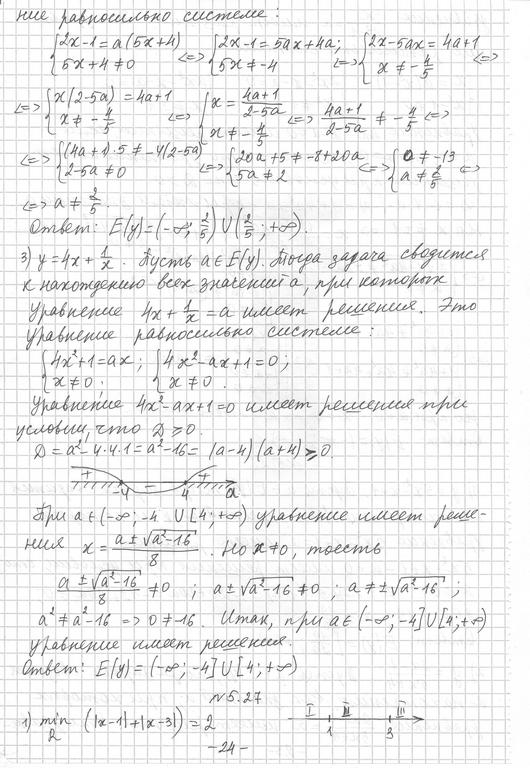 ние равносильно системе:
{2x-1=a(5x+4) 5x+4≠0 <=> {2x-1=5ax+4a; 5x≠-4 <=> {2x-5ax=4a+1 x≠-4/5 <=>
<=> {x(2-5a)=4a+1 x≠-4/5 <=> {x=(4a+1)/(2-5a) x≠-4/5 <=> (4a+1)/(2-5a) ≠ -4/5 <=>
<=> {(4a+1)·5≠-4(2-5a) 2-5a≠0 <=> {20a+5≠-8+20a 5a≠2 <=> {0≠-13 a≠2/5 <=>
<=> a≠2/5.
Ответ: E(y)=(-∞; 2/5)∪(2/5; +∞).
3) y=4x+1/x. Пусть a∈E(y). Тогда задача сводится
к нахождению всех значений a, при которых
уравнение 4x+1/x=a имеет решения. Это
уравнение равносильно системе:
{4x²+1=ax; x≠0; {4x²-ax+1=0; x≠0.
Уравнение 4x²-ax+1=0 имеет решения при
условии, что D≥0.
D=a²-4·4·1=a²-16=(a-4)(a+4)≥0
+ - +
-4 4 a
При a∈(-∞;-4 ∪[4;+∞) уравнение имеет реше-
ния x=(a±√(a²-16))/8. Но x≠0, тоесть
(a±√(a²-16))/8≠0; a±√(a²-16)≠0; a≠±√(a²-16);
a²≠a²-16 => 0≠-16. Итак, при a∈(-∞;-4]∪[4;+∞)
уравнение имеет решения.
Ответ: E(y)=(-∞;-4]∪[4;+∞)
№5.27
1) min (|x-1|+|x-3|)=2 I II III
1 3
-24-